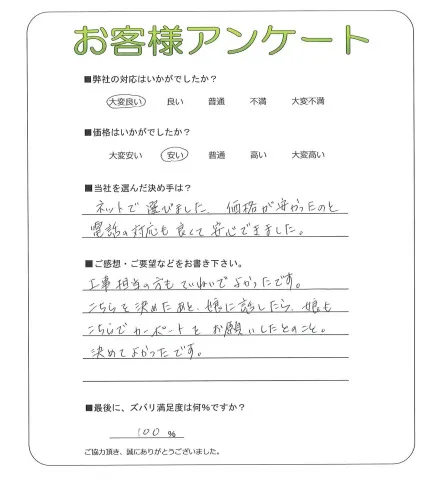 お客様アンケート
■弊社の対応はいかがでしたか？
大変良い　良い　普通　不満　大変不満
■価格はいかがでしたか？
大変安い　安い　普通　高い　大変高い
■当社を選んだ決め手は？
ネットで選びました。価格が安かったのと
電話の対応も良くて安心できました。
■ご感想・ご要望などをお書き下さい。
工事担当の方もていねいでよかったです。
こちらを決めたあと、娘に話したら、娘も
こちらでカーポートをお願いしたとのこと。
決めてよかったです。
■最後に、ズバリ満足度は何%ですか？
100 %
ご協力頂き、誠にありがとうございました。